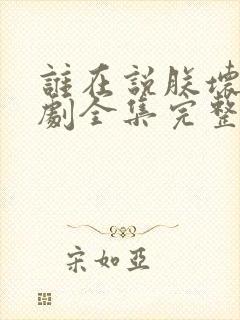 誰在說朕壞
劇全集完整
宋如亞